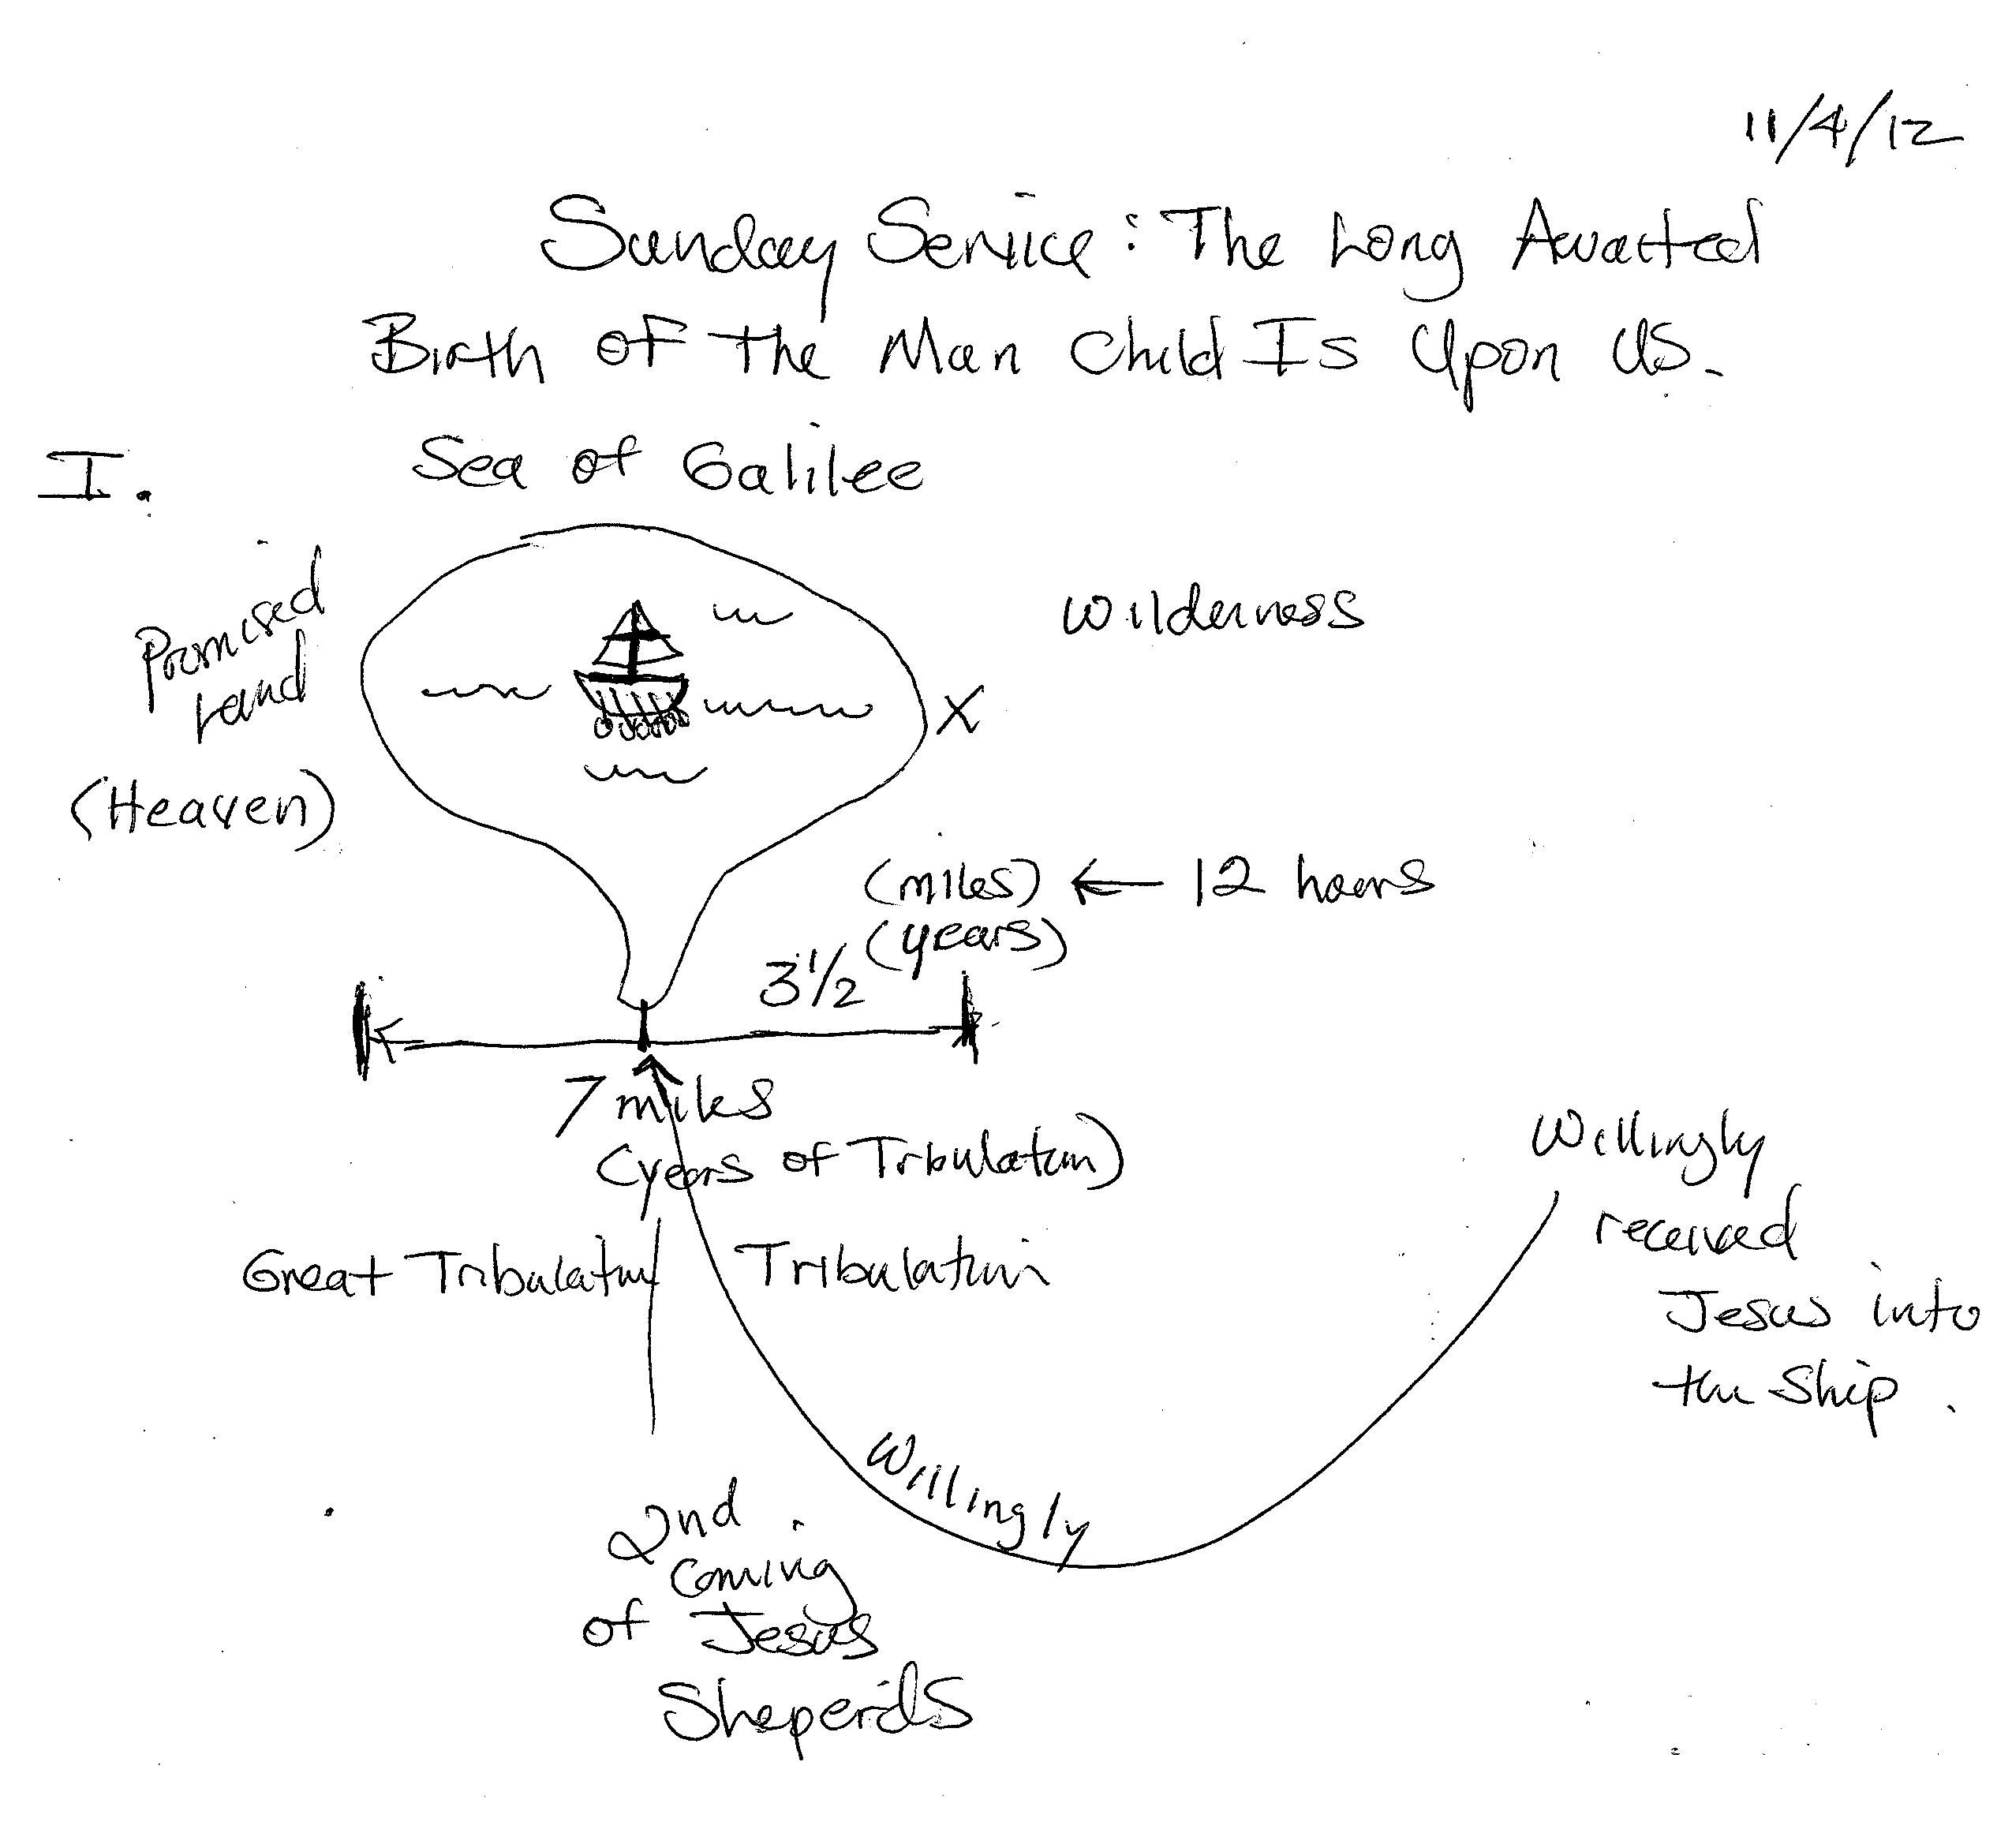 11/4/12
Sunday Service: The Long Awaited
Birth of the Man Child Is Upon Us.
I. Sea of Galilee
Promised
Land
(Heaven)
Wilderness
X
(miles) ← 12 hours
(years)
3 1/2
7 miles
(years of Tribulation)
Great Tribulation
Tribulation
Willingly
received
Jesus into
the Ship.
Willingly
2nd
Coming
of Jesus
Sheperds